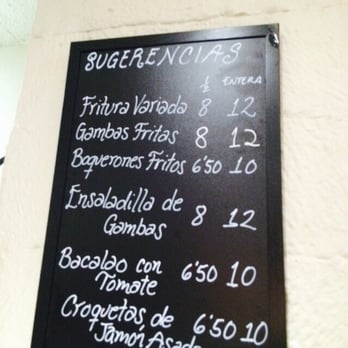 SUGERENCIAS
½ ENTERA
Fritura Variada 8 12
Gambas Fritas 8 12
Boquerones Fritos 6'50 10
Ensaladilla de
Gambas 8 12
Bacalao con
Tomate 6'50 10
Croquetas de
Jamón Asado 6'50 10